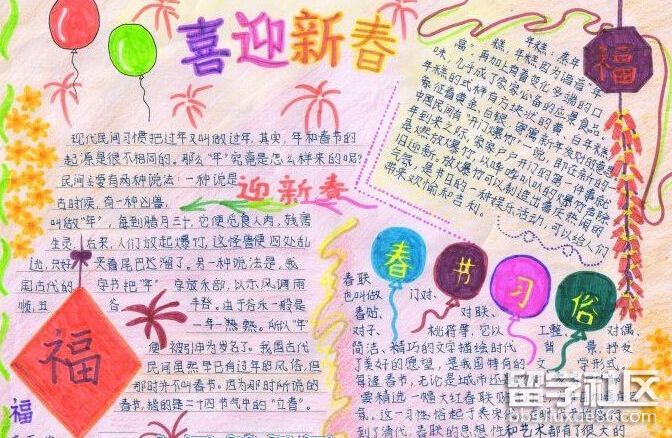 喜迎新春
现代民间习惯把过年又叫做过年,其实,年和春节的
起源是很不相同的。那么“年”究竟是怎么样来的呢?
民间主要有两种说法:一种说是
古时候,有一种凶兽,
叫做“年”,每到腊月三十,它便觅食人肉,残害
生灵
后来,人们放起爆竹,这怪兽便四处乱
逃,只好
夹着尾巴逃溜了。另一种说法是,我
国古代的
字书把“年”
字放禾部,以示风调雨
顺,五
谷
丰登。由于谷禾一般是
一年一熟。所以“年”
便
被引申为岁名了。我国古代
民间虽然早已有过年的风俗,但
那时并不叫春节。因为那时所说的
春节,指的是二十四节气中的“立春”。
迎新春
福
福
年糕:蒸年
糕,年糕因为谐音“年
高”,再加上有着变化多端的口
味,几乎成了家家必备的应景食品。
年糕的式样有方块状的黄、白年糕,
象征着黄金、白银,寄寓新年发财的意思。
中国民间有“开门爆竹”一说。即在新的一
年到来之际,家家户户开门的第一件事就
是燃放爆竹,以哔哔叭叭的爆竹声除
旧迎新。放爆竹可以创造出喜庆热闹的
气氛,是节日的一种娱乐活动,可以给人们
带来欢愉和吉利。
福
春节习俗
春联
也叫做
门对、
春贴、
对联、
对子、
桃符等,它以
工整、
对偶、
简洁、精巧的文字描绘时代
背
景,抒发
了美好的愿望,是我国特有的
文
学形式。
每逢春节,无论是城市还
要精选一幅大红春联贴
气。这一习俗起于宋
到了清代,春联的思想性和艺术都有了很大的
留学社区
bbs.liuxue86.com